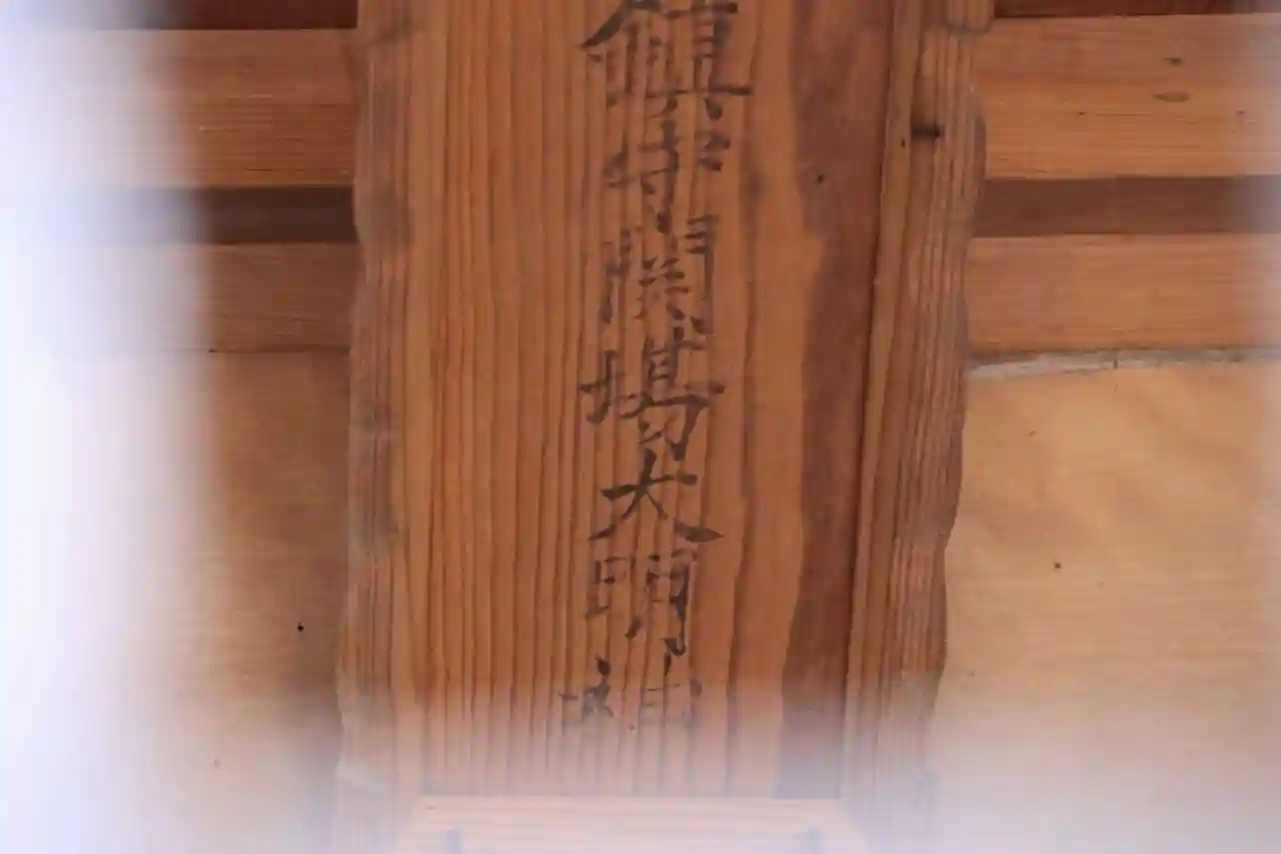 鎮守関場大明神